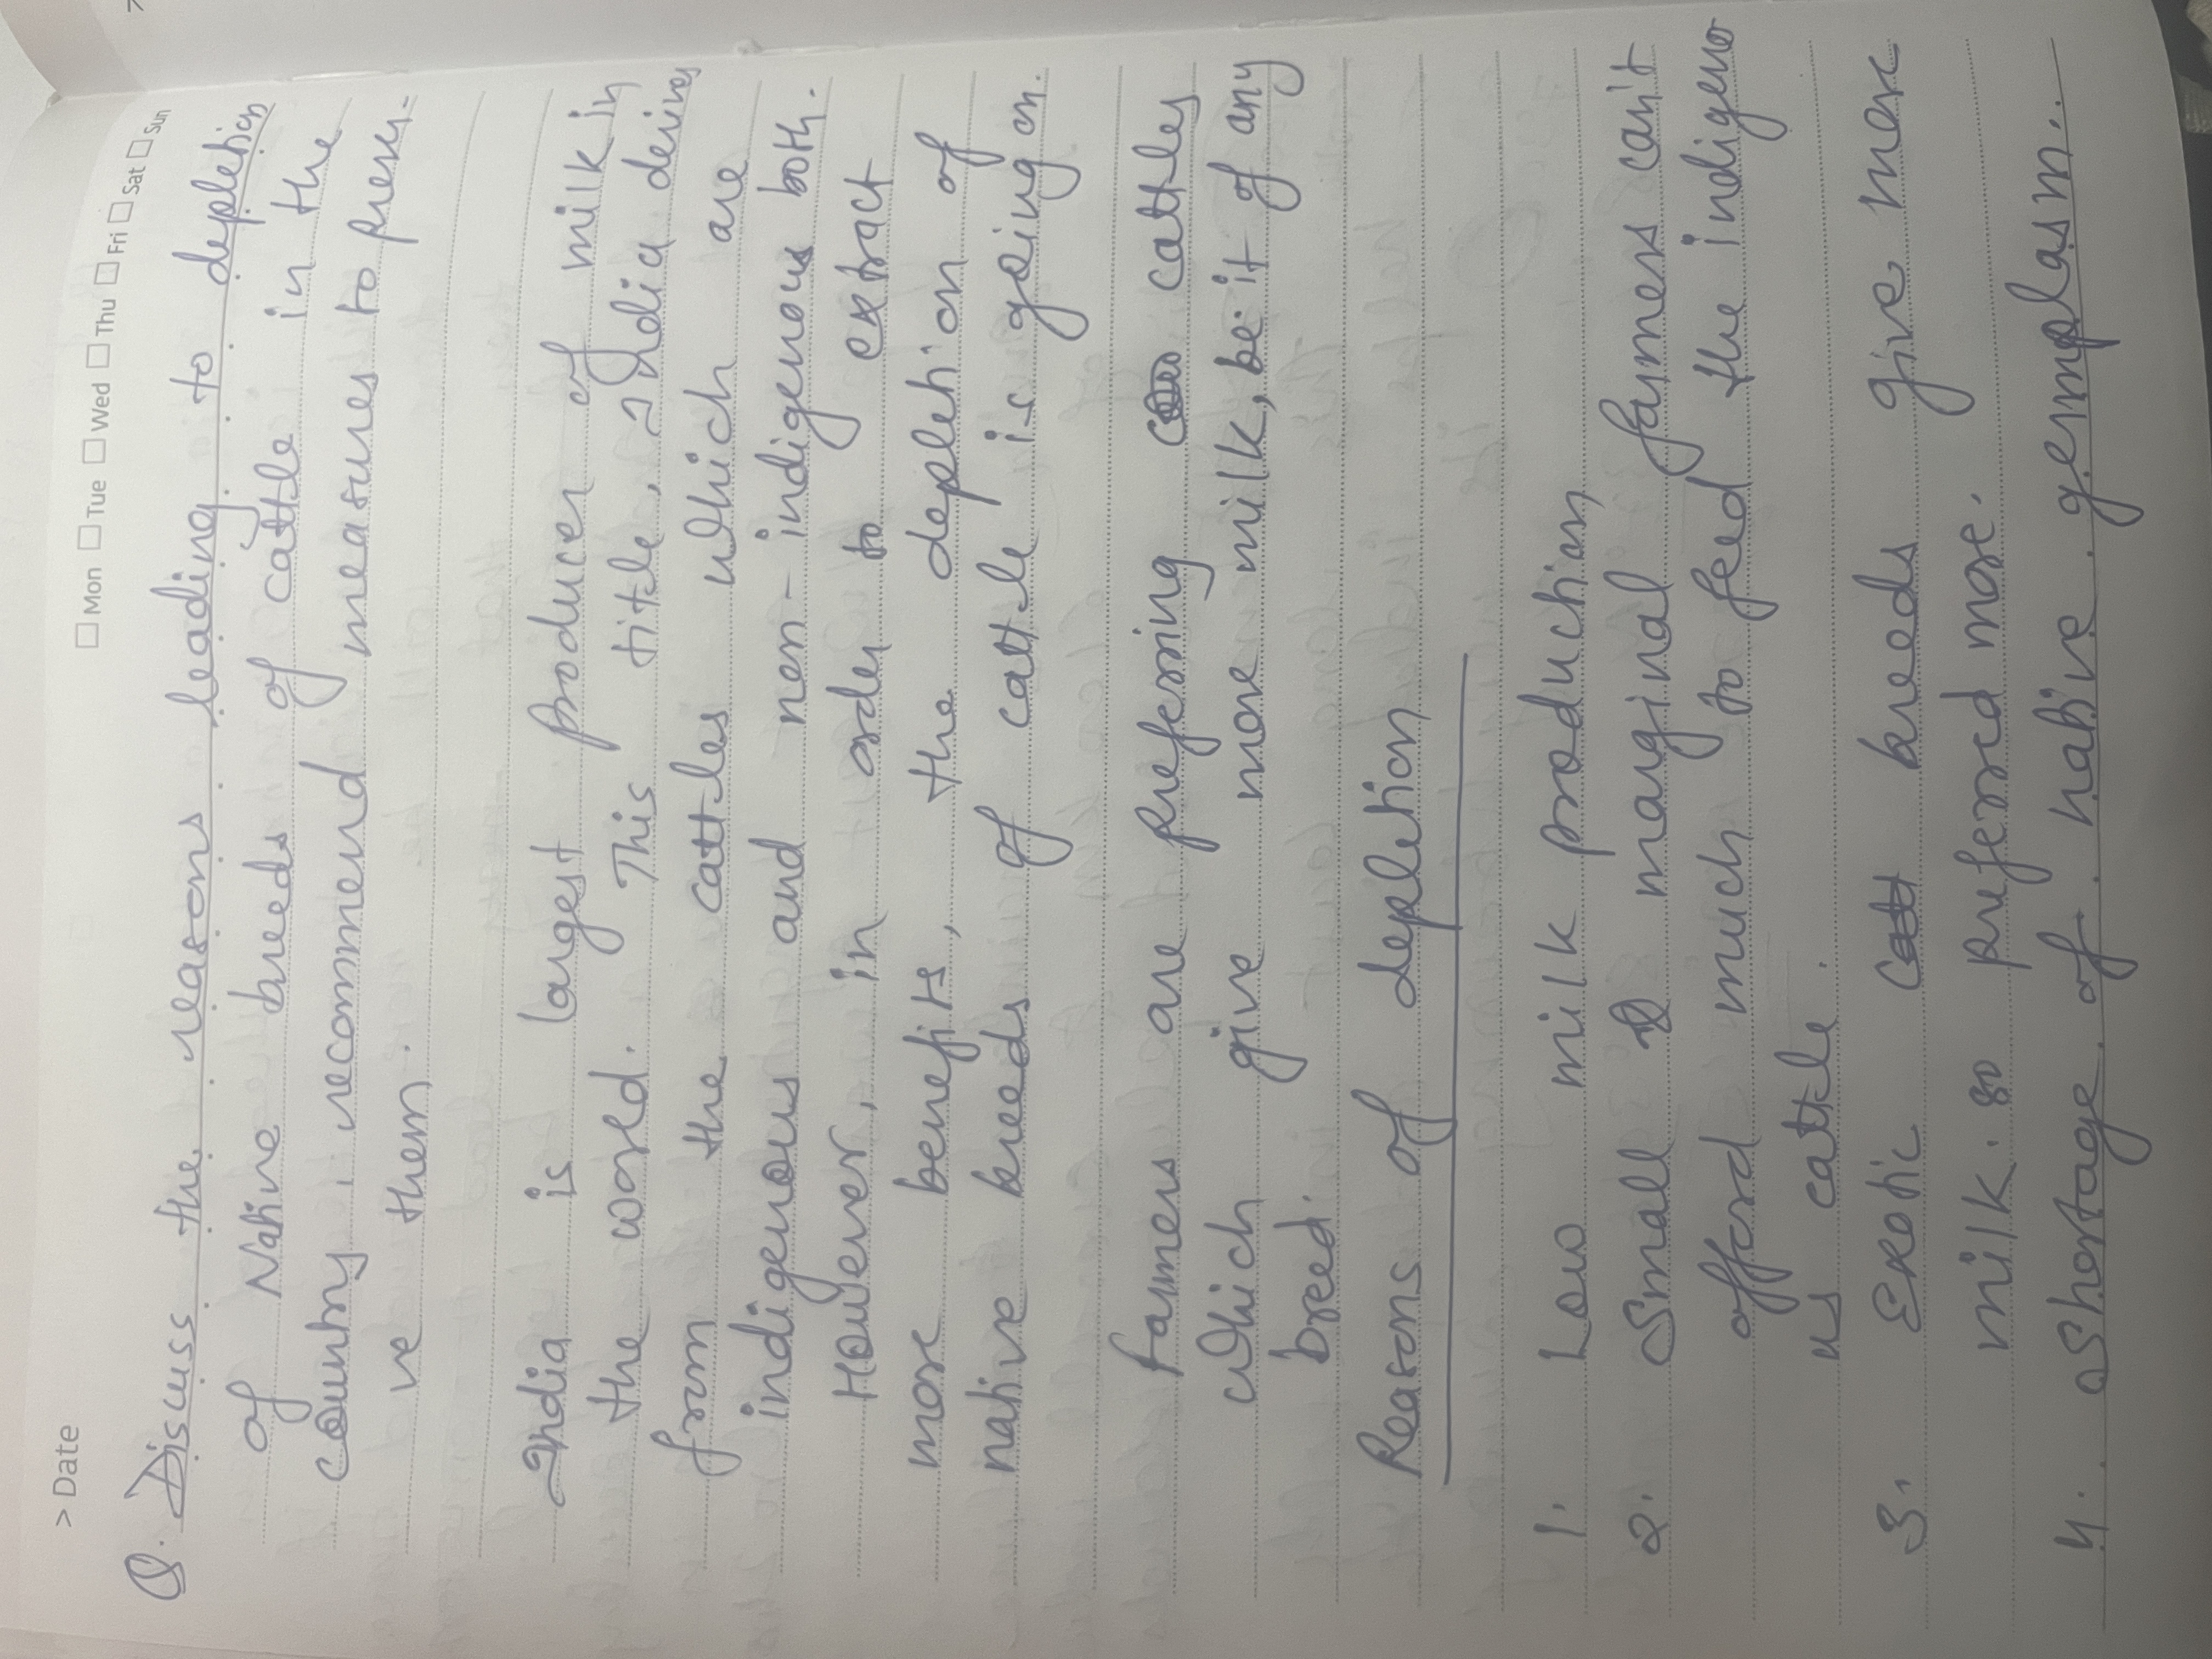 > Date
□ Mon □ Tue □ Wed □ Thu □ Fri □ Sat □ Sun
Q. Discuss the reasons leading to depletion
of Native breeds of cattle in the
country, recommend measures to preser-
ve them.
India is largest producer of milk in
the world. This title, India derives
from the cattles which are
indigenous and non-indigenous both.
However, in order to extract
more benefits, the depletion of
native breeds of cattle is going on.
Farmers are preferring cattles
which give more milk, be it of any
breed.
Reasons of depletion
1. Low milk production
2. Small & marginal farmers can't
afford much to feed the indigeno
us cattle.
3. Exotic breeds give more
milk. so preferred more.
4. Shortage of native germplasm.